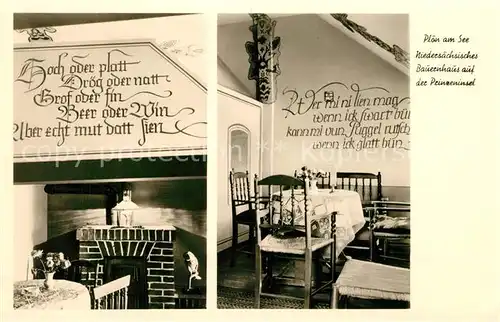 Hoch oder platt
Drög oder natt
Grof oder fin
Beer oder Win
Aber echt mut datt sien
Wer mi ni lien mag
wenn ick swart bün
kann mi vun Puggel rutschen
wenn ick glatt bün
Plön am See
Niedersächsisches
Bauernhaus auf
der Prinzeninsel